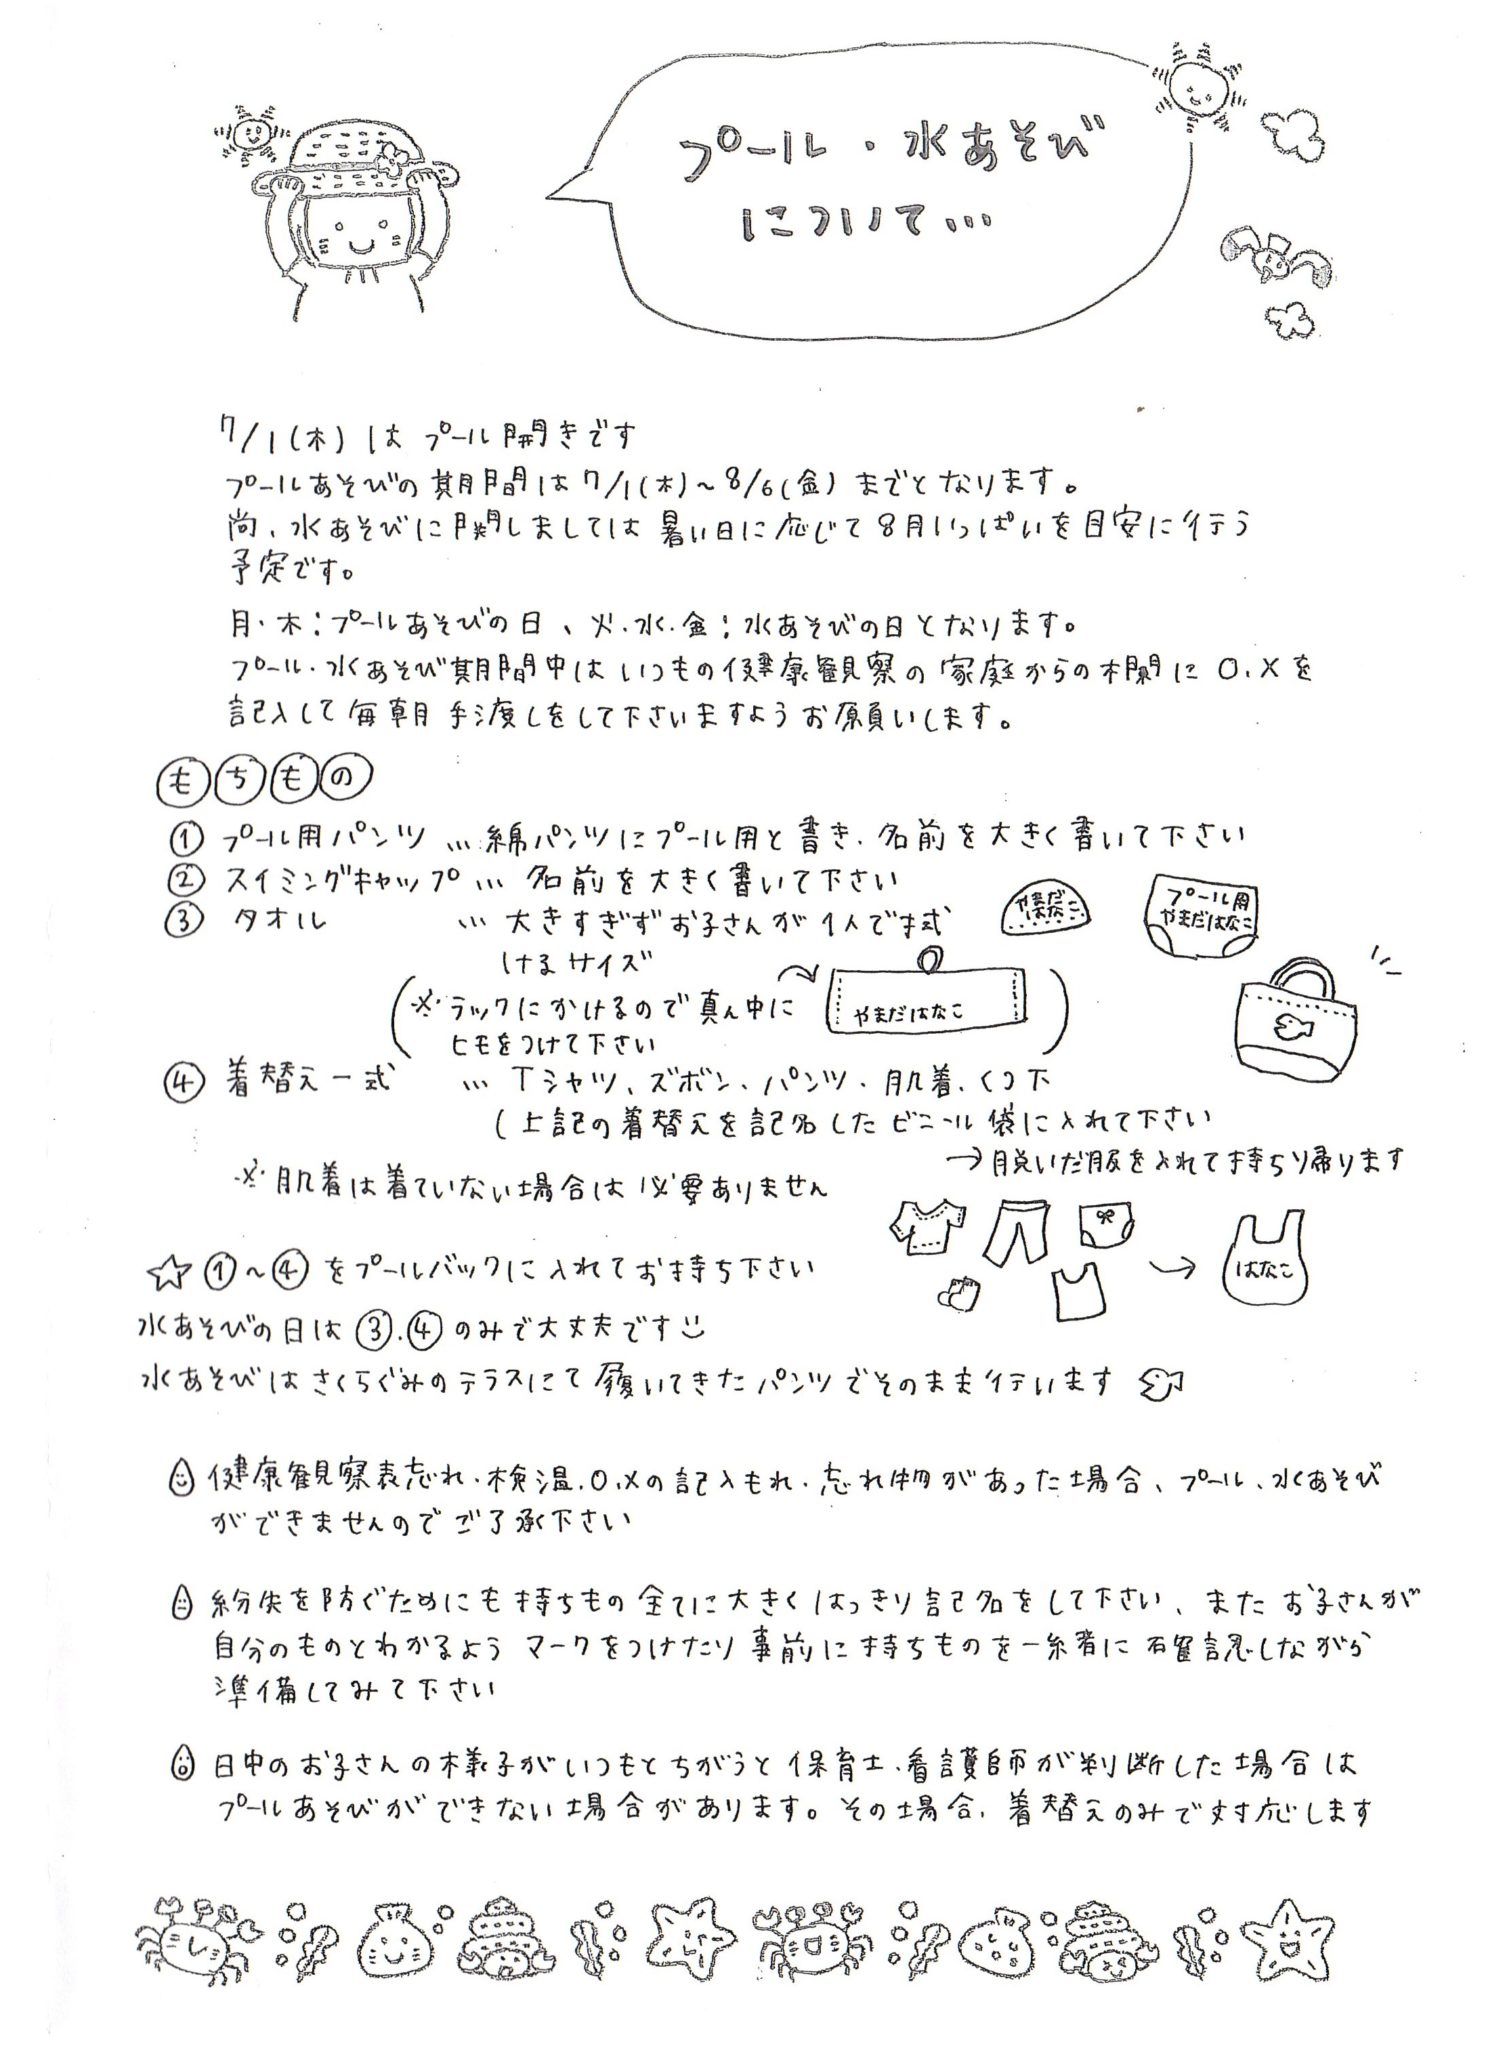 プール・水あそび
について…
7/1(木)は プール開きです
プールあそびの期間は7/1(木)~8/6(金)までとなります。
尚、水あそびに関しましては暑い日に応じて8月いっぱいを目安に行う
予定です。
月・木:プールあそびの日、火・水・金:水あそびの日となります。
プール・水あそび期間中はいつもの健康観察の家庭からの欄に〇、×を
記入して毎朝手渡しをして下さいますようお願いします。
もちもの
① プール用パンツ … 綿パンツにプール用と書き、名前を大きく書いて下さい
② スイミングキャップ … 名前を大きく書いて下さい
③ タオル … 大きすぎずお子さんが1人で拭
けるサイズ
※ラックにかけるので真ん中に
ヒモをつけて下さい
やまだはなこ
やまだ
はなこ
プール用
やまだはなこ
④ 着替え一式 … Tシャツ、ズボン、パンツ、肌着、くつ下
(上記の着替えを記名したビニール袋に入れて下さい
→脱いだ服を入れて持ち帰ります
※肌着は着ていない場合は必要ありません
はなこ
☆①~④をプールバックに入れてお持ち下さい
水あそびの日は③、④のみで大丈夫です
水あそびはさくらぐみのテラスにて履いてきたパンツでそのまま行います
健康観察表忘れ・検温、〇、×の記入もれ・忘れ物があった場合、プール、水あそび
ができませんのでご了承下さい
紛失を防ぐためにも持ちもの全てに大きくはっきり記名をして下さい、またお子さんが
自分のものとわかるようマークをつけたり事前に持ちものを一緒に確認しながら
準備してみて下さい
日中のお子さんの様子がいつもとちがうと保育士、看護師が判断した場合は
プールあそびができない場合があります。その場合、着替えのみで対応します